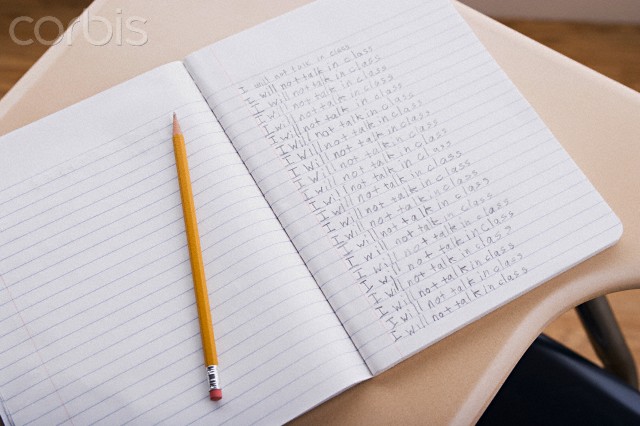 I will not talk in class
I will not talk in class
I will not talk in class
I will not talk in class
I will not talk in class
I will not talk in class
I will not talk in class
I will not talk in class
I will not talk in class
I will not talk in class
I will not talk in class
I will not talk in class
I will not talk in class
I will not talk in class
I will not talk in class
I will not talk in class
I will not talk in class
I will not talk in class
I will not talk in class
I will not talk in class
I will not talk in class
corbis